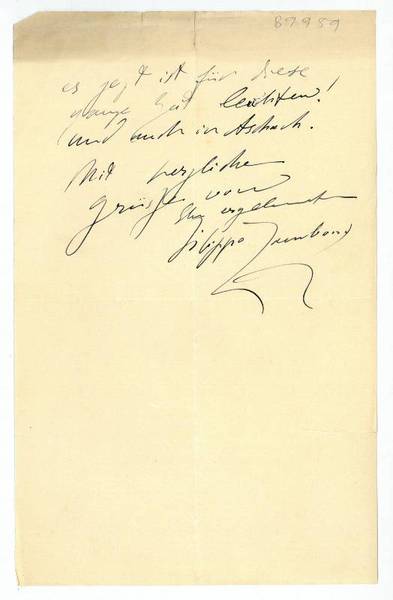 B7959
es jezt ist für diese
lange Zeit
und auch in Aschach.
Mit herzlichen
Grüsse von
Ihr ergebenst
Filippo